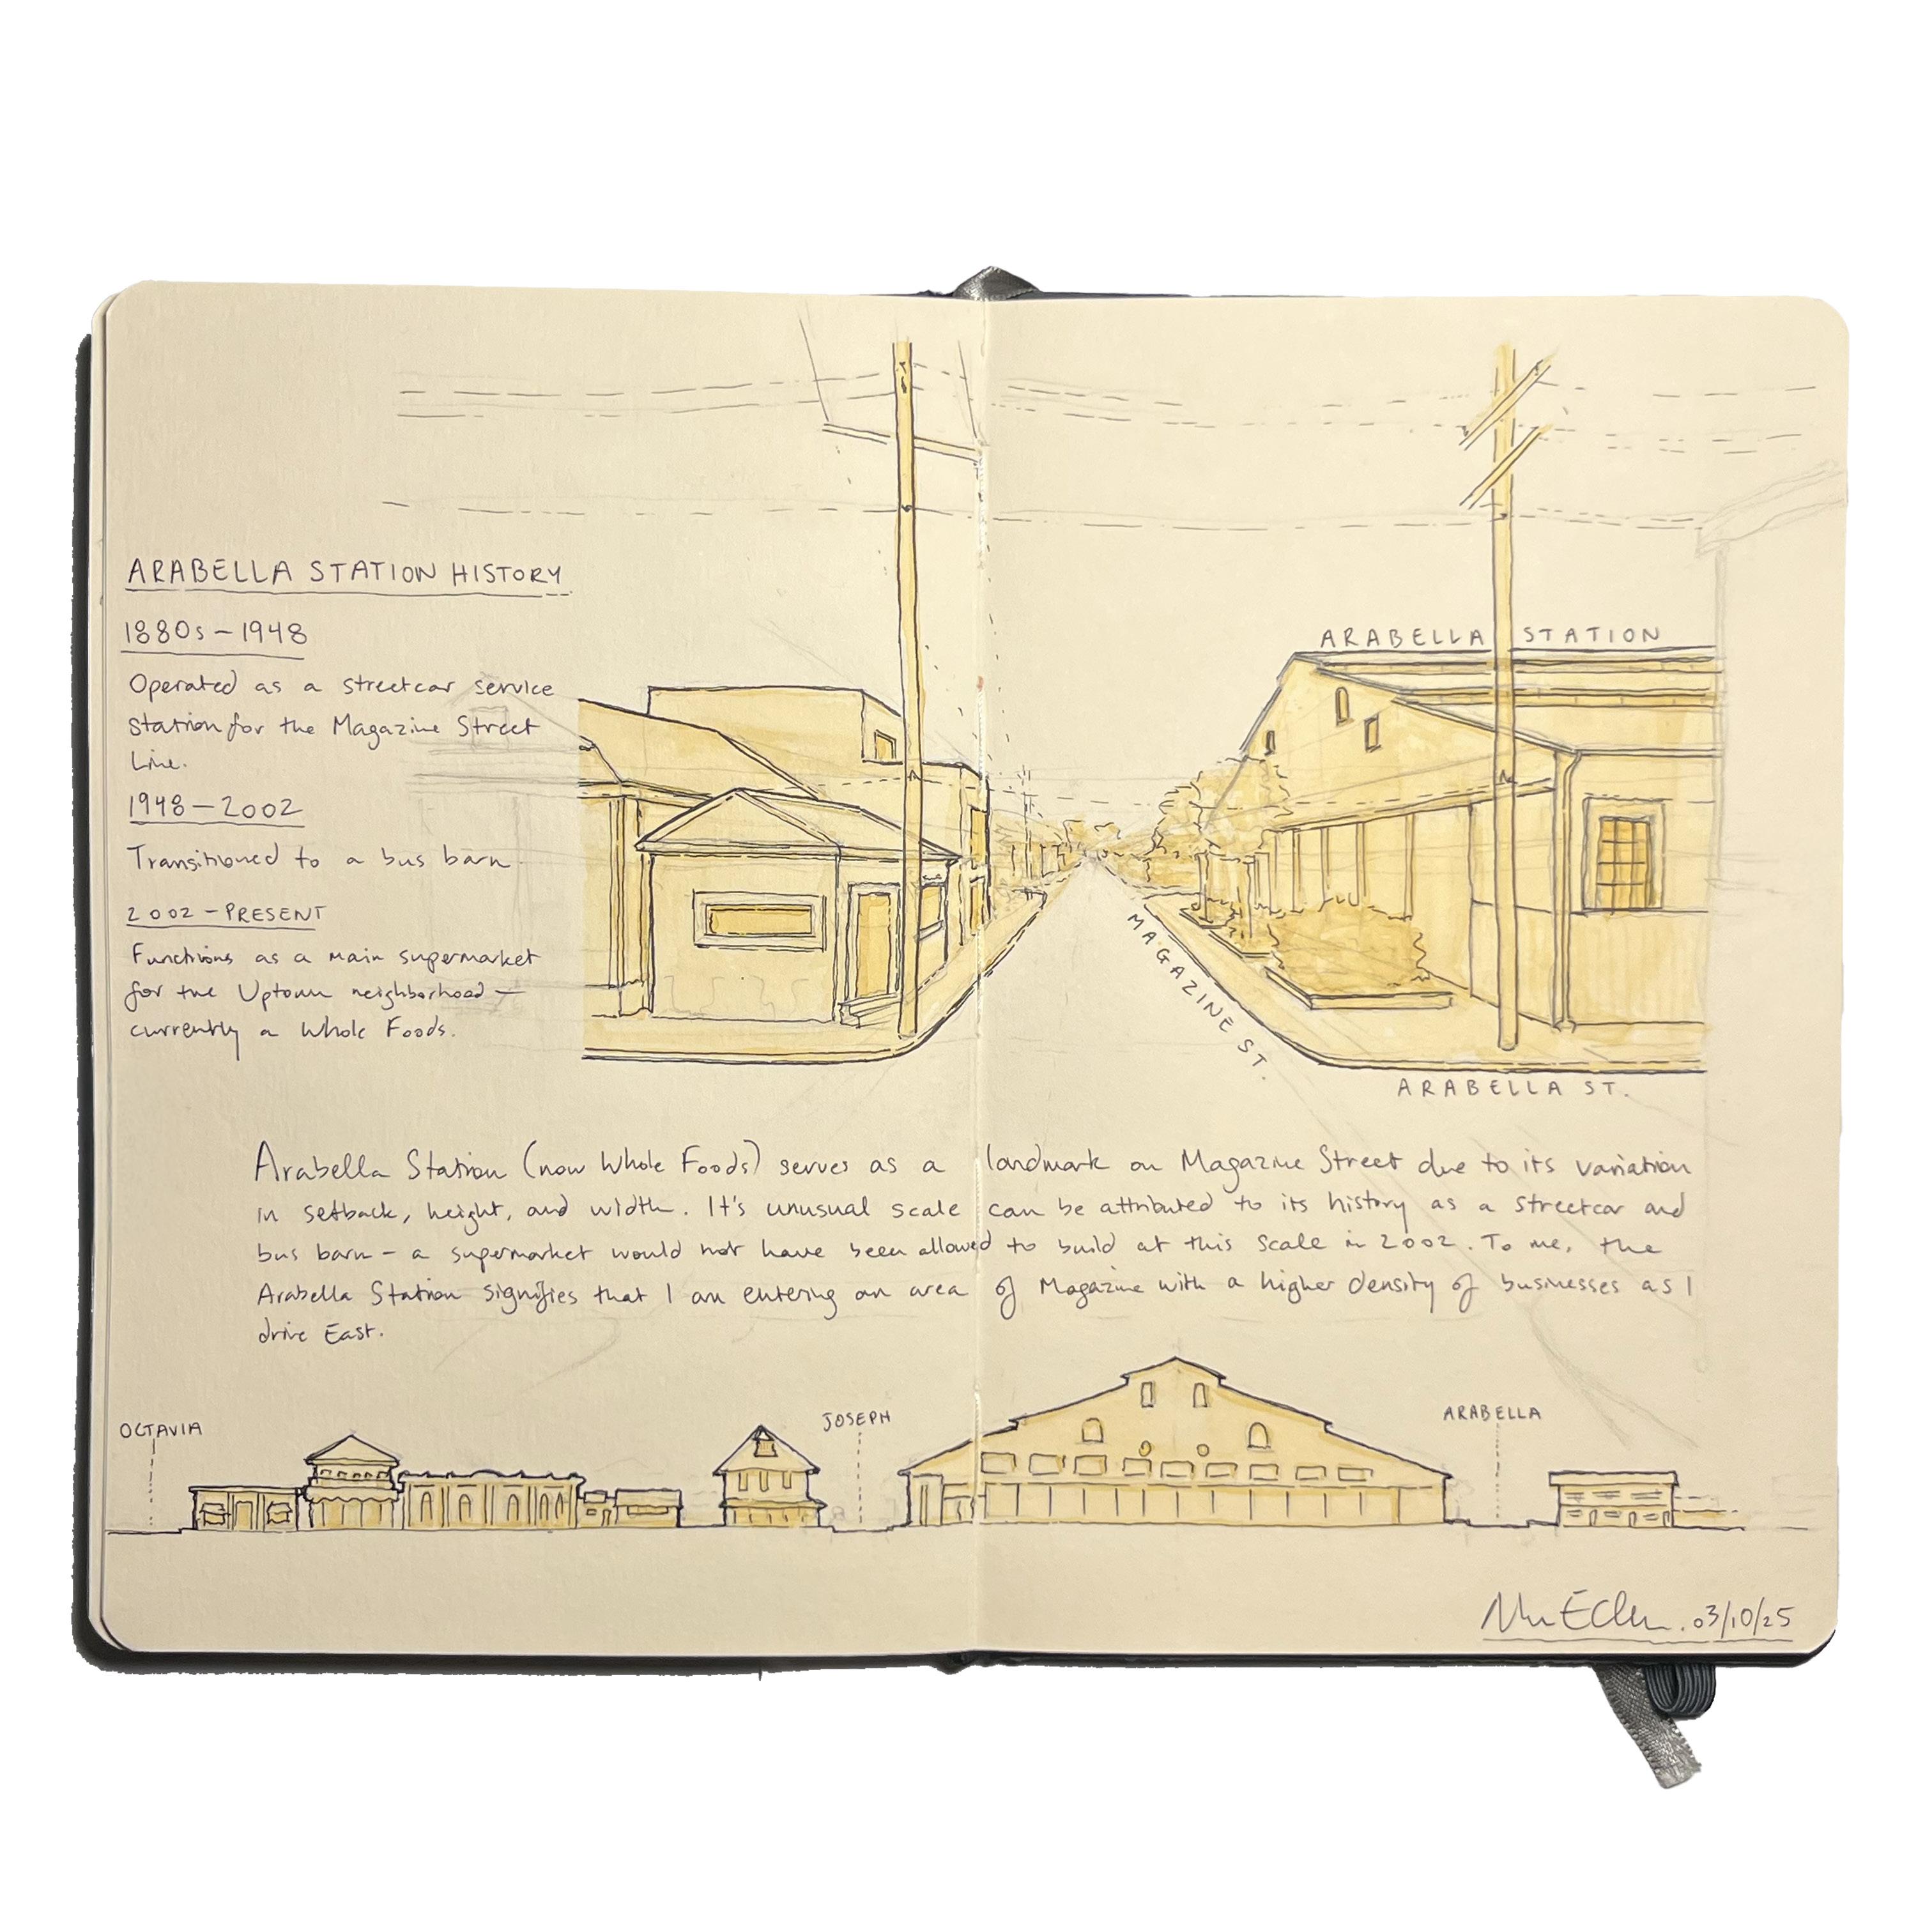 ARABELLA STATION HISTORY
1880s – 1948
Operated as a streetcar service
station for the Magazine Street
Line.
1948 – 2002
Transitioned to a bus barn
2002 – PRESENT
Functions as a main supermarket
for the Uptown neighborhood –
currently a Whole Foods.
ARABELLA STATION
MAGAZINE ST.
ARABELLA ST.
Arabella Station (now Whole Foods) serves as a landmark on Magazine Street due to its variation
in setback, height, and width. It's unusual scale can be attributed to its history as a streetcar and
bus barn – a supermarket would not have been allowed to build at this scale in 2002. To me, the
Arabella Station signifies that I am entering an area of Magazine with a higher density of businesses as I
drive East.
OCTAVIA
JOSEPH
ARABELLA
03/10/25